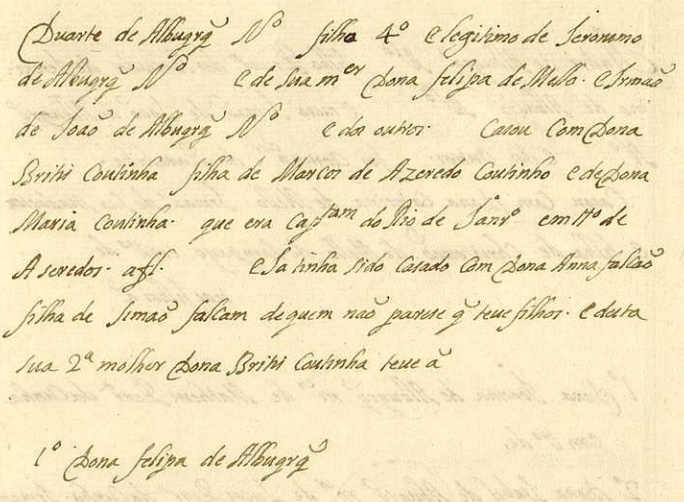 Duarte de Albuqrq̃ Nº filho 4º e legitimo de Jeronimo
de Albuqrq̃ Nº e de sua mer Dona felipa de Mello. e Irmaõ
de Joaõ de Albuqrq̃ Nº e dos outros. Casou com Dona
Britis Coutinha filha de Marcos de Azeredo Coutinho e de Dona
Maria Coutinha. que era Captam do Rio de Janrº em ttº de
Aseredos. a fl. e Ja tinha sido casado com Dona Anna falcaõ
filha de Simaõ falcam de quem naõ parese q̃ teve filhos. e desta
sua 2ª molher Dona Britis Coutinha teve a
1º Dona felipa de Albuqrq̃